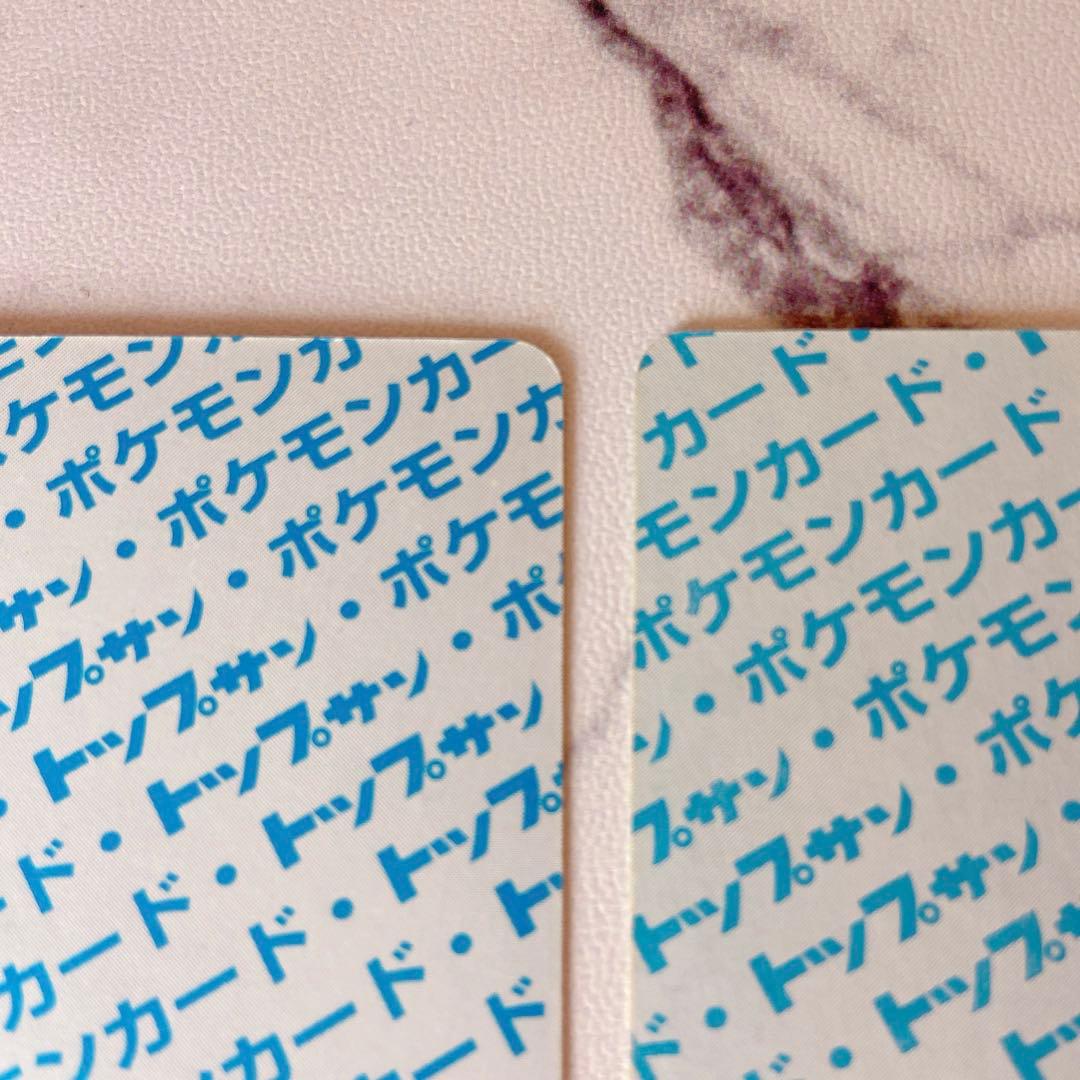 ポケモンカ
・ポケモンカー
・ポケモンカ
トップサン・ポケモ
・トップサン・ポ
ド・トップサン
カード・トップ
ンカード・ト
カード
カード・
モンカード・
ポケモンカード
・ポケモンカー
プサン・ポケモン
トップサン・ポケ
ド・トップサン・